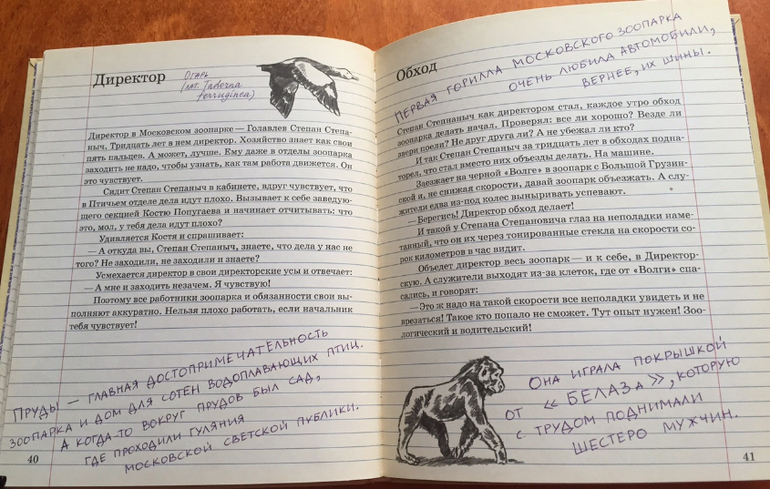 Директор
Огарь
(лат. Tadorna
ferruginea)
Директор в Московском зоопарке — Голавлев Степан Степа-
ныч. Тридцать лет в нем директор. Хозяйство знает как свои
пять пальцев. А может, лучше. Ему даже в отделы зоопарка
заходить не надо, чтобы узнать, как там работа движется. Он
это чувствует.
Сидит Степан Степаныч в кабинете, вдруг чувствует, что
в Птичьем отделе дела идут плохо. Вызывает к себе заведую-
щего секцией Костю Попугаева и начинает отчитывать: что
это, мол, у тебя дела идут плохо?
Удивляется Костя и спрашивает:
— А откуда вы, Степан Степаныч, знаете, что дела у нас не
того? Не заходили, не заходили и знаете?
Усмехается директор в свои директорские усы и отвечает:
— А мне и заходить незачем. Я чувствую!
Поэтому все работники зоопарка и обязанности свои вы-
полняют аккуратно. Нельзя плохо работать, если начальник
тебя чувствует!
Пруды — главная достопримечательность
зоопарка и дом для сотен водоплавающих птиц.
А когда-то вокруг прудов был сад,
где проходили гуляния
московской светской публики.
40
Обход
Первая горилла Московского зоопарка
очень любила автомобили,
вернее, их шины.
Степан Степнаныч как директором стал, каждое утро обход
зоопарка делать начал. Проверял: все ли хорошо? Везде ли
звери поели? Не друг друга ли? А не убежал ли кто?
И так Степан Степаныч за тридцать лет в обходах подна-
торел, что стал вместо них объезды делать. На машине.
Заезжает на черной «Волге» в зоопарк с Большой Грузин-
ской и, не снижая скорости, давай зоопарк объезжать. А слу-
жители едва из-под колес выныривать успевают.
— Берегись! Директор обход делает!
И такой у Степана Степановича глаз на неполадки наме-
танный, что он их через тонированные стекла на скорости со-
рок километров в час видит.
Объедет директор весь зоопарк — и к себе, в Директор-
скую. А служители выходят из-за клеток, где от «Волги» спа-
сались, и говорят:
— Это ж надо на такой скорости все неполадки увидеть и не
врезаться! Такое кто попало не сможет. Тут опыт нужен! Зоо-
логический и водительский!
Она играла покрышкой
от «БЕЛАЗа», которую
с трудом поднимали
шестеро мужчин.
41